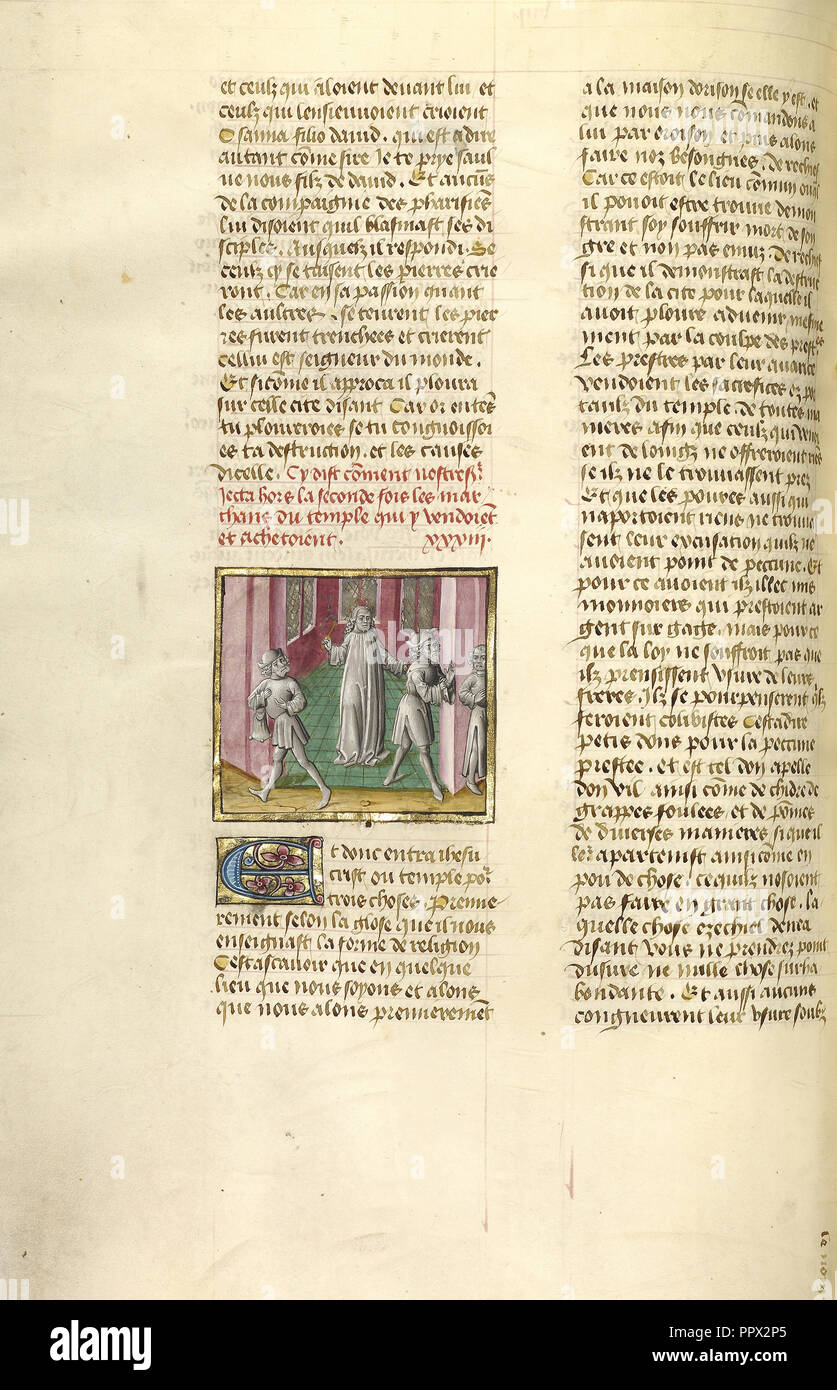 et ceulz qui aloient deuant lui et
ceulz qui lensieuuoient crioient
Osanna filio dauid. qui est adire
autant cõme sire Je te prye saul
ue nous filz de dauid. Et aucũs
de la compaignie des pharisees
lui disoient quil blasmast ses di
sciples. Ausquelz il respondi. Se
ceulz cy se taisent les pierres crie
ront. Car en sa passion quant
les aultres se teurent les pier
res furent trenchees et crierent
Cellui est seigneur du monde.
Et si cõme il approca il ploura
sur celle cite disant Car or entẽs
tu ploureroies se tu congnoissoi
es ta destruction. et les causes
dicelle. Cy dist cõment nostre sr
Jecta hors la seconde fois les mar
chans du temple qui y vendoiẽt
et achetoient. xxxiii.
Et donc entra ihesu
crist ou temple por
trois choses. Premie
rement selon la glose que il nous
enseignast la forme de religion
Cest ascauoir que en quelque
lieu que nous soyons et alons
que nous alons premieremẽt
a la maison dorison se elle y est. et
que nous nous cõmandons a
lui par oroison et puis alons
faire noz besongnes. de rechief
Car ce estoit le lieu cõmun ouql
il pouoit estre trouue demon
strant soy souffrir mort de son
gre et non pas enuiz. de rechief
si que il demonstrast la destruc
tion de la cite pour laquelle il
auoit ploure aduenir mesme
ment par la coulpe des prestrs
Les prestres par leur auarice
vendoient les sacrefices ez por
taulz du temple de toutes ma
nieres afin que ceulz qui venoi
ent de loingz ne offreroient riens
se ilz ne le trouuassent prez
Et que les poures aussi qui
naportoient riens ne trouuas
sent leur excusation quilz ne
auoient point de peccune. Et
pour ce auoient ilz illec mis
monnoiers qui prestoient ar
gent sur gage. mais pour ce
que la loy ne souffroit pas que
ilz prensissent vsure de leurs
freres. Ilz se pourpenserent qlz
feroient colibistes Cest adire
petis dons pour la peccune
prestee. et est tel don apelle
don vil ainsi cõme de chidre de
grappes foulees et de põmes
de diuerses manieres si que il
ler apartenist ainsi cõme en
pou de chose. ce quilz nosoient
pas faire en grant chose. la
quelle chose ezechiel denea
disant vous ne prendrez point
dusure ne nulle chose surha
bondante. Et aussi aucuns
congneurent leur vsure soubz
alamy
PPX2P5
www.alamy.com
Image ID: PPX2P5